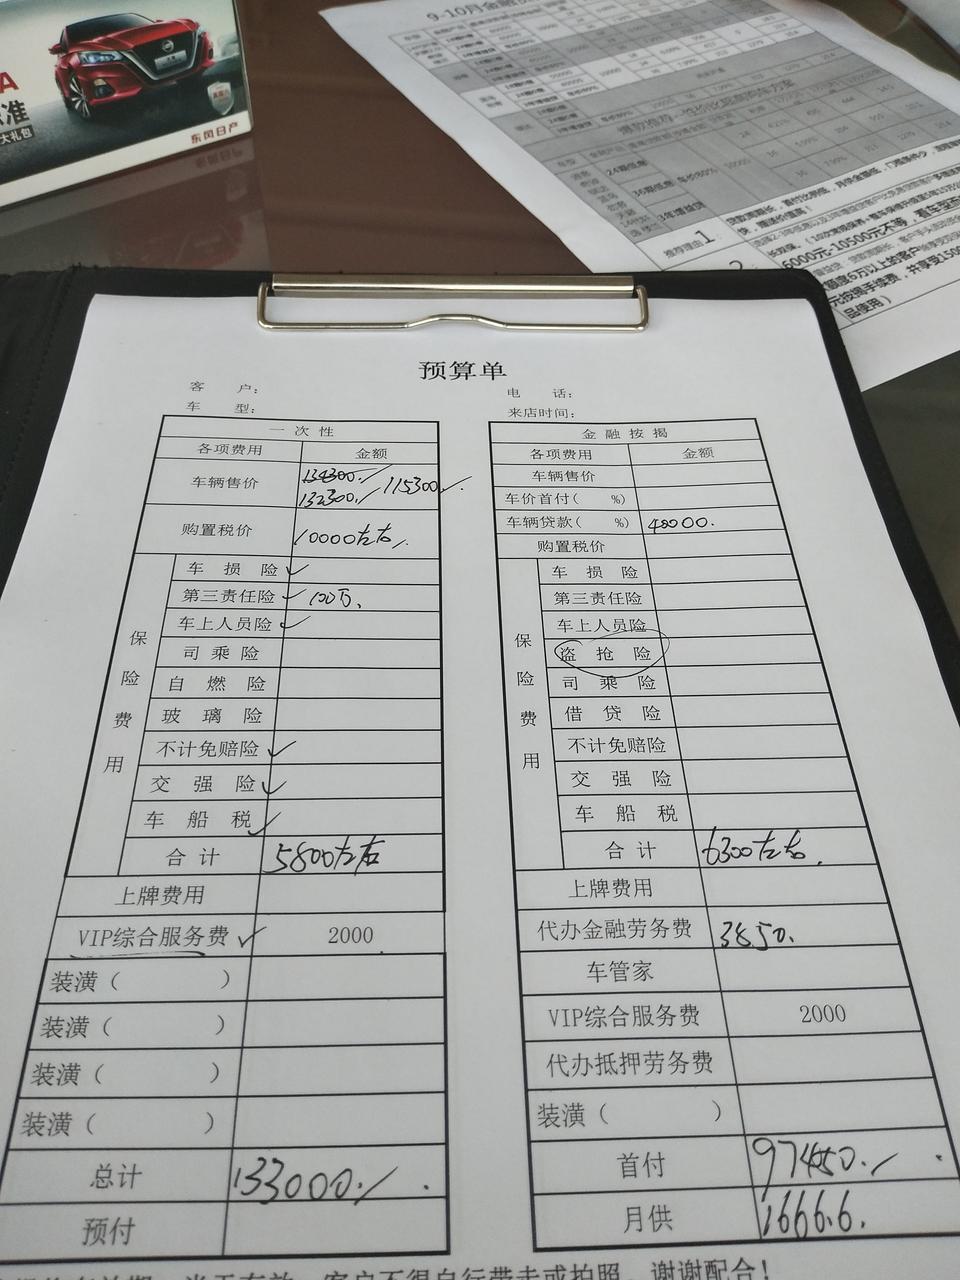 准
大礼包
东风日产
9-10月金融
24期低息
36期低息
推荐理由1:
6000元-10500元不等
品使用)
预算单
客 户:
电 话:
车 型:
来店时间:
一次性
各项费用 金额
车辆售价 134300. 132300. 115300
购置税价 10000左右
保险费用
车损险 ✓
第三责任险 ✓ 100万、
车上人员险 ✓
司乘险
自燃险
玻璃险
不计免赔险 ✓
交强险 ✓
车船税 ✓
合计 5800左右
上牌费用
VIP综合服务费 ✓ 2000
装潢( )
装潢( )
装潢( )
装潢( )
总计 133000.
预付
金融按揭
各项费用 金额
车辆售价
车价首付( %)
车辆贷款( %) 48000.
购置税价
保险费用
车损险
第三责任险
车上人员险
盗抢险
司乘险
借贷险
不计免赔险
交强险
车船税
合计 6300左右.
上牌费用
代办金融劳务费 3850.
车管家
VIP综合服务费 2000
代办抵押劳务费
装潢( )
首付 97450.
月供 1666.6.
客户不得自行带走或拍照,谢谢配合!